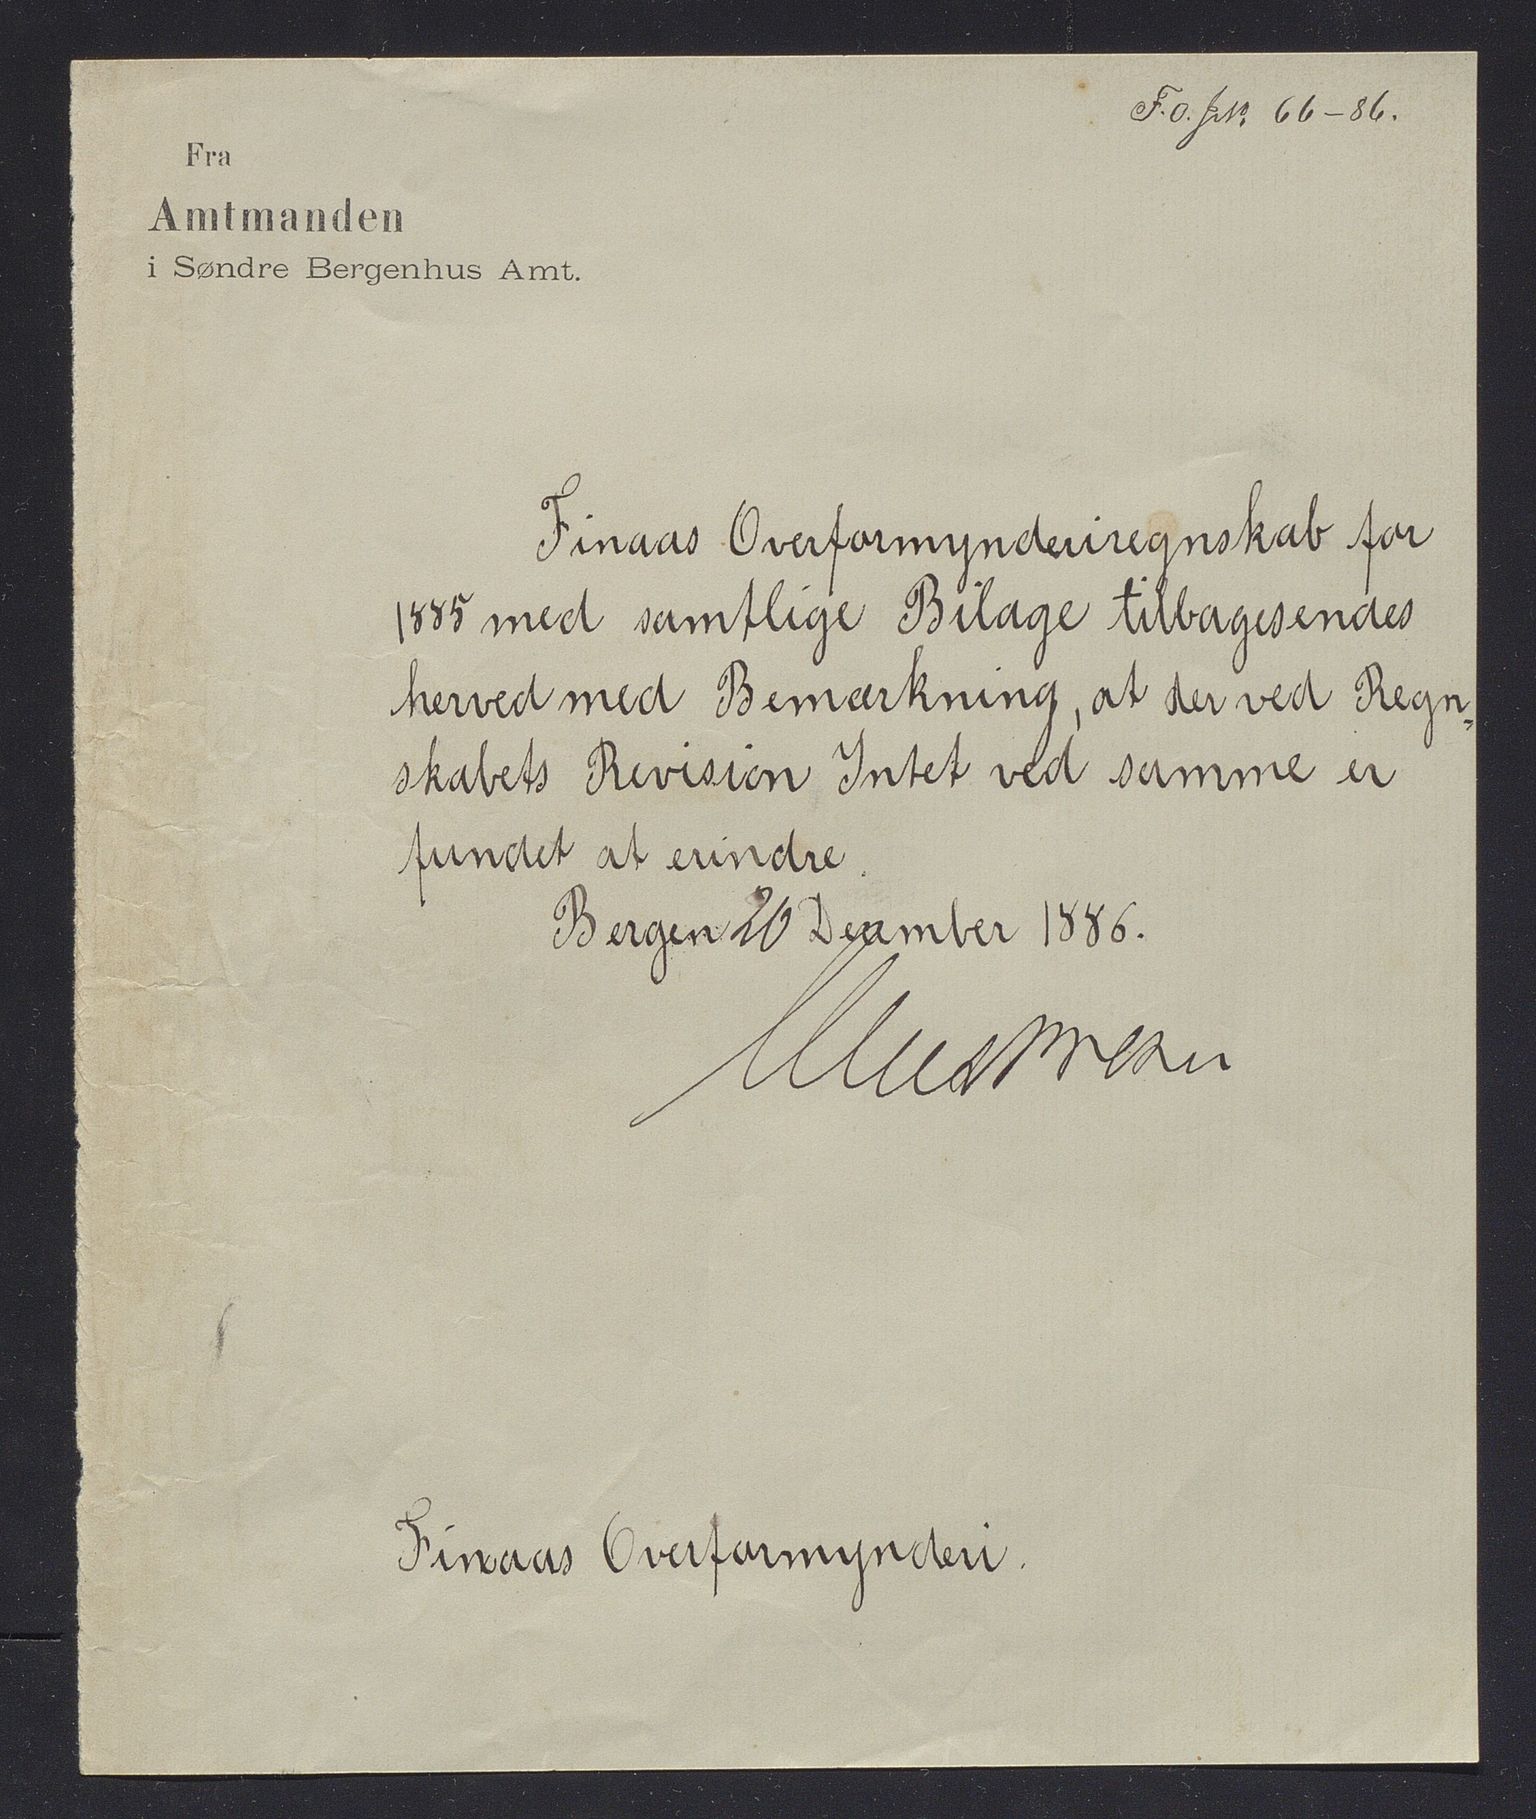 F.O. JN. 66-86.
Fra
Amtmanden
i Søndre Bergenhus Amt.
Finaas Overformynderiregnskab for
1885 med samtlige Bilage tilbagesendes
herved med Bemærkning, at der ved Regn-
skabets Revision Intet ved samme er
fundet at erindre.
Bergen 20 December 1886.
Finaas Overformynderi.